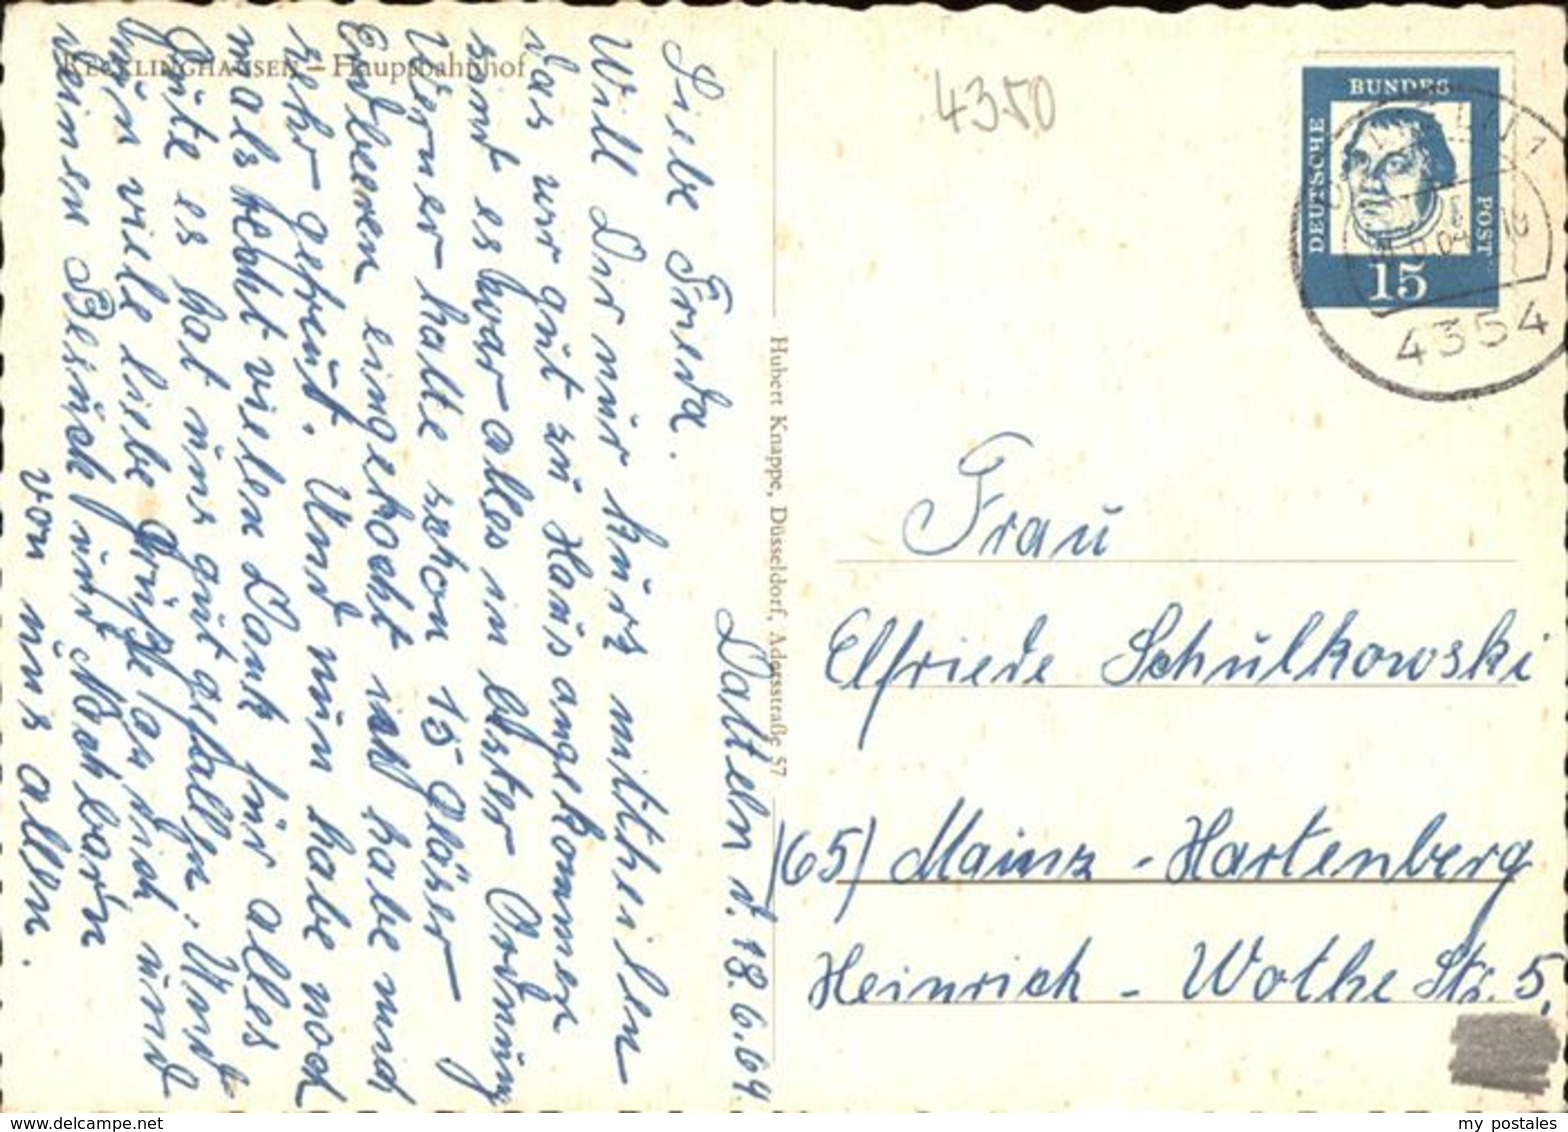 RECKLINGHAUSEN – Hauptbahnhof
Datteln d. 18.6.64
Liebe Frieda.
Will Dir nur kurz mittheilen
das wir gut zu Haus angekommen
sind es war alles in bester Ordnung
Werner hatte schon 15 Gläser
Erdbeeren eingekocht ich habe mich
sehr gefreut. Und nun habe noch
mals recht vielen Dank für alles
Gute es hat uns gut gefallen. Und
nun viele liebe Grüße an dich und
deinen Besuch und Nachbarn
von uns allen.
Hubert Knappe, Düsseldorf, Adersstraße 57
4350
DEUTSCHE
BUNDES
POST
15
4354
Frau
Elfriede Schulkowski
(65) Mainz - Hartenberg
Heinrich - Wothe Str. 5.
my postales